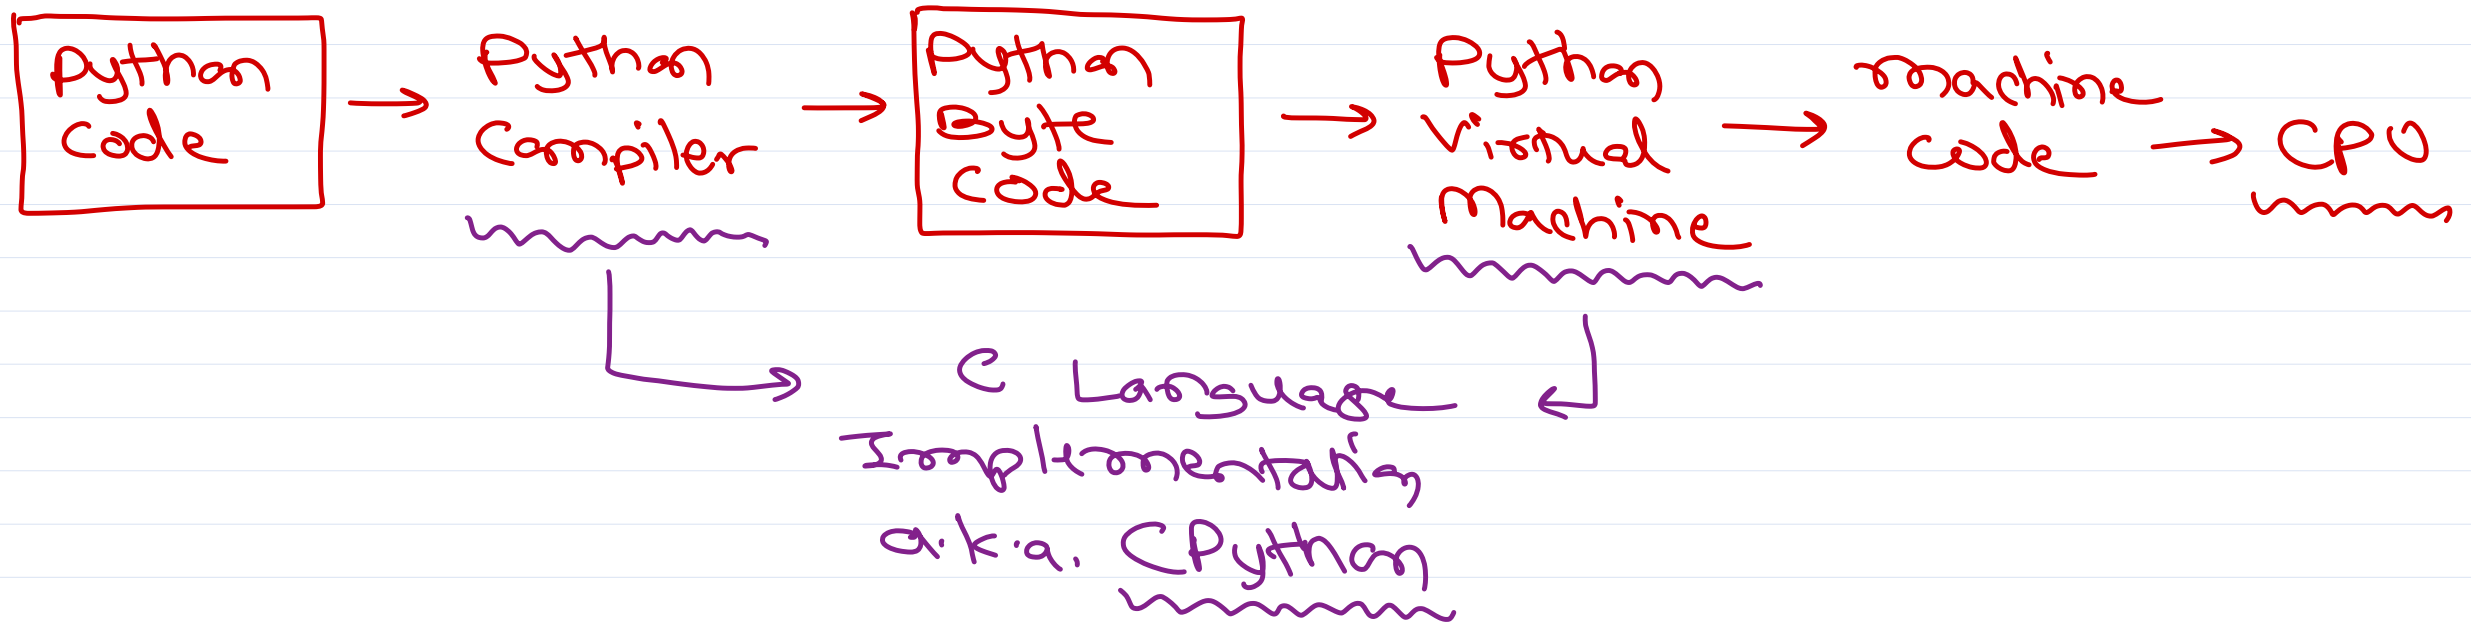 Python
Code
Python
Compiler
Python
Byte
Code
Python
Virtual
Machine
Machine
Code
CPU
C Language
Implementation
a.k.a. CPython